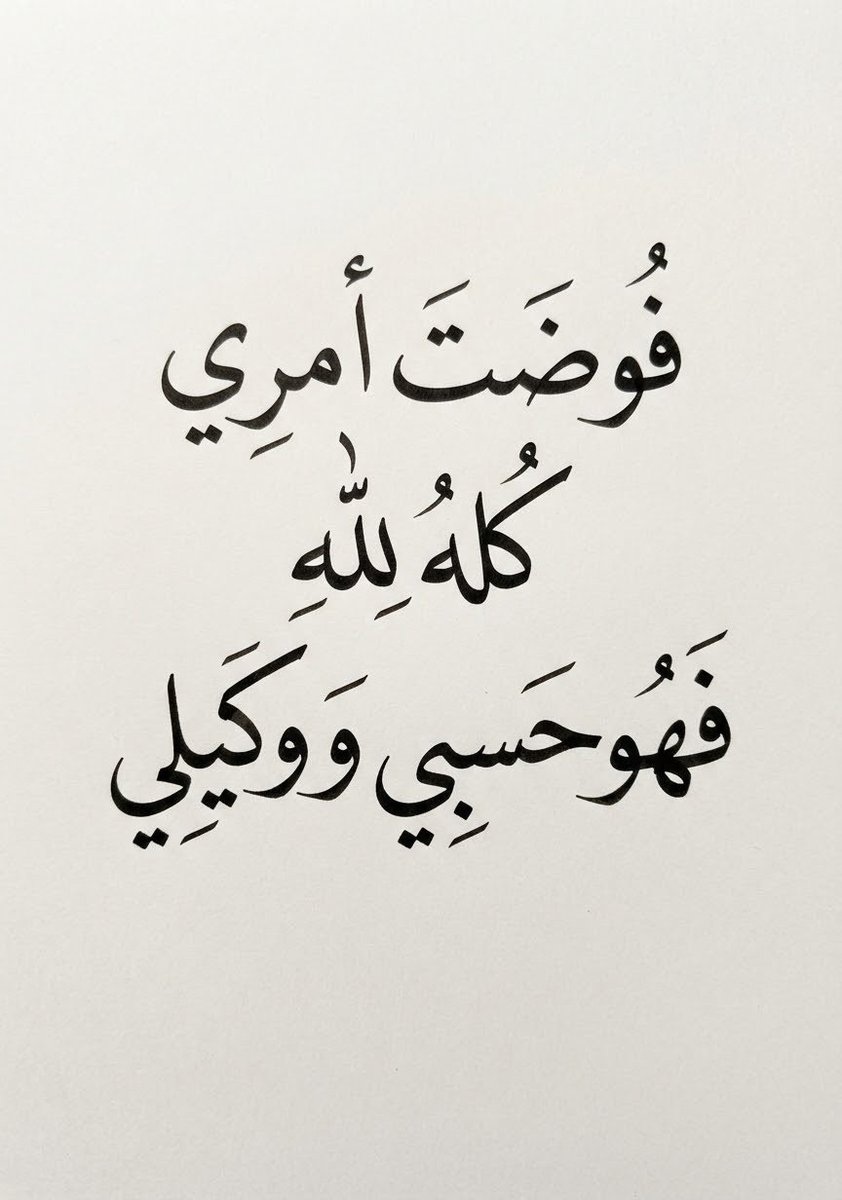 فُوضَتَ أمرِي
كُلهُ لِلّٰهِ
فَهُو حَسبِي وَ وكَيلِي